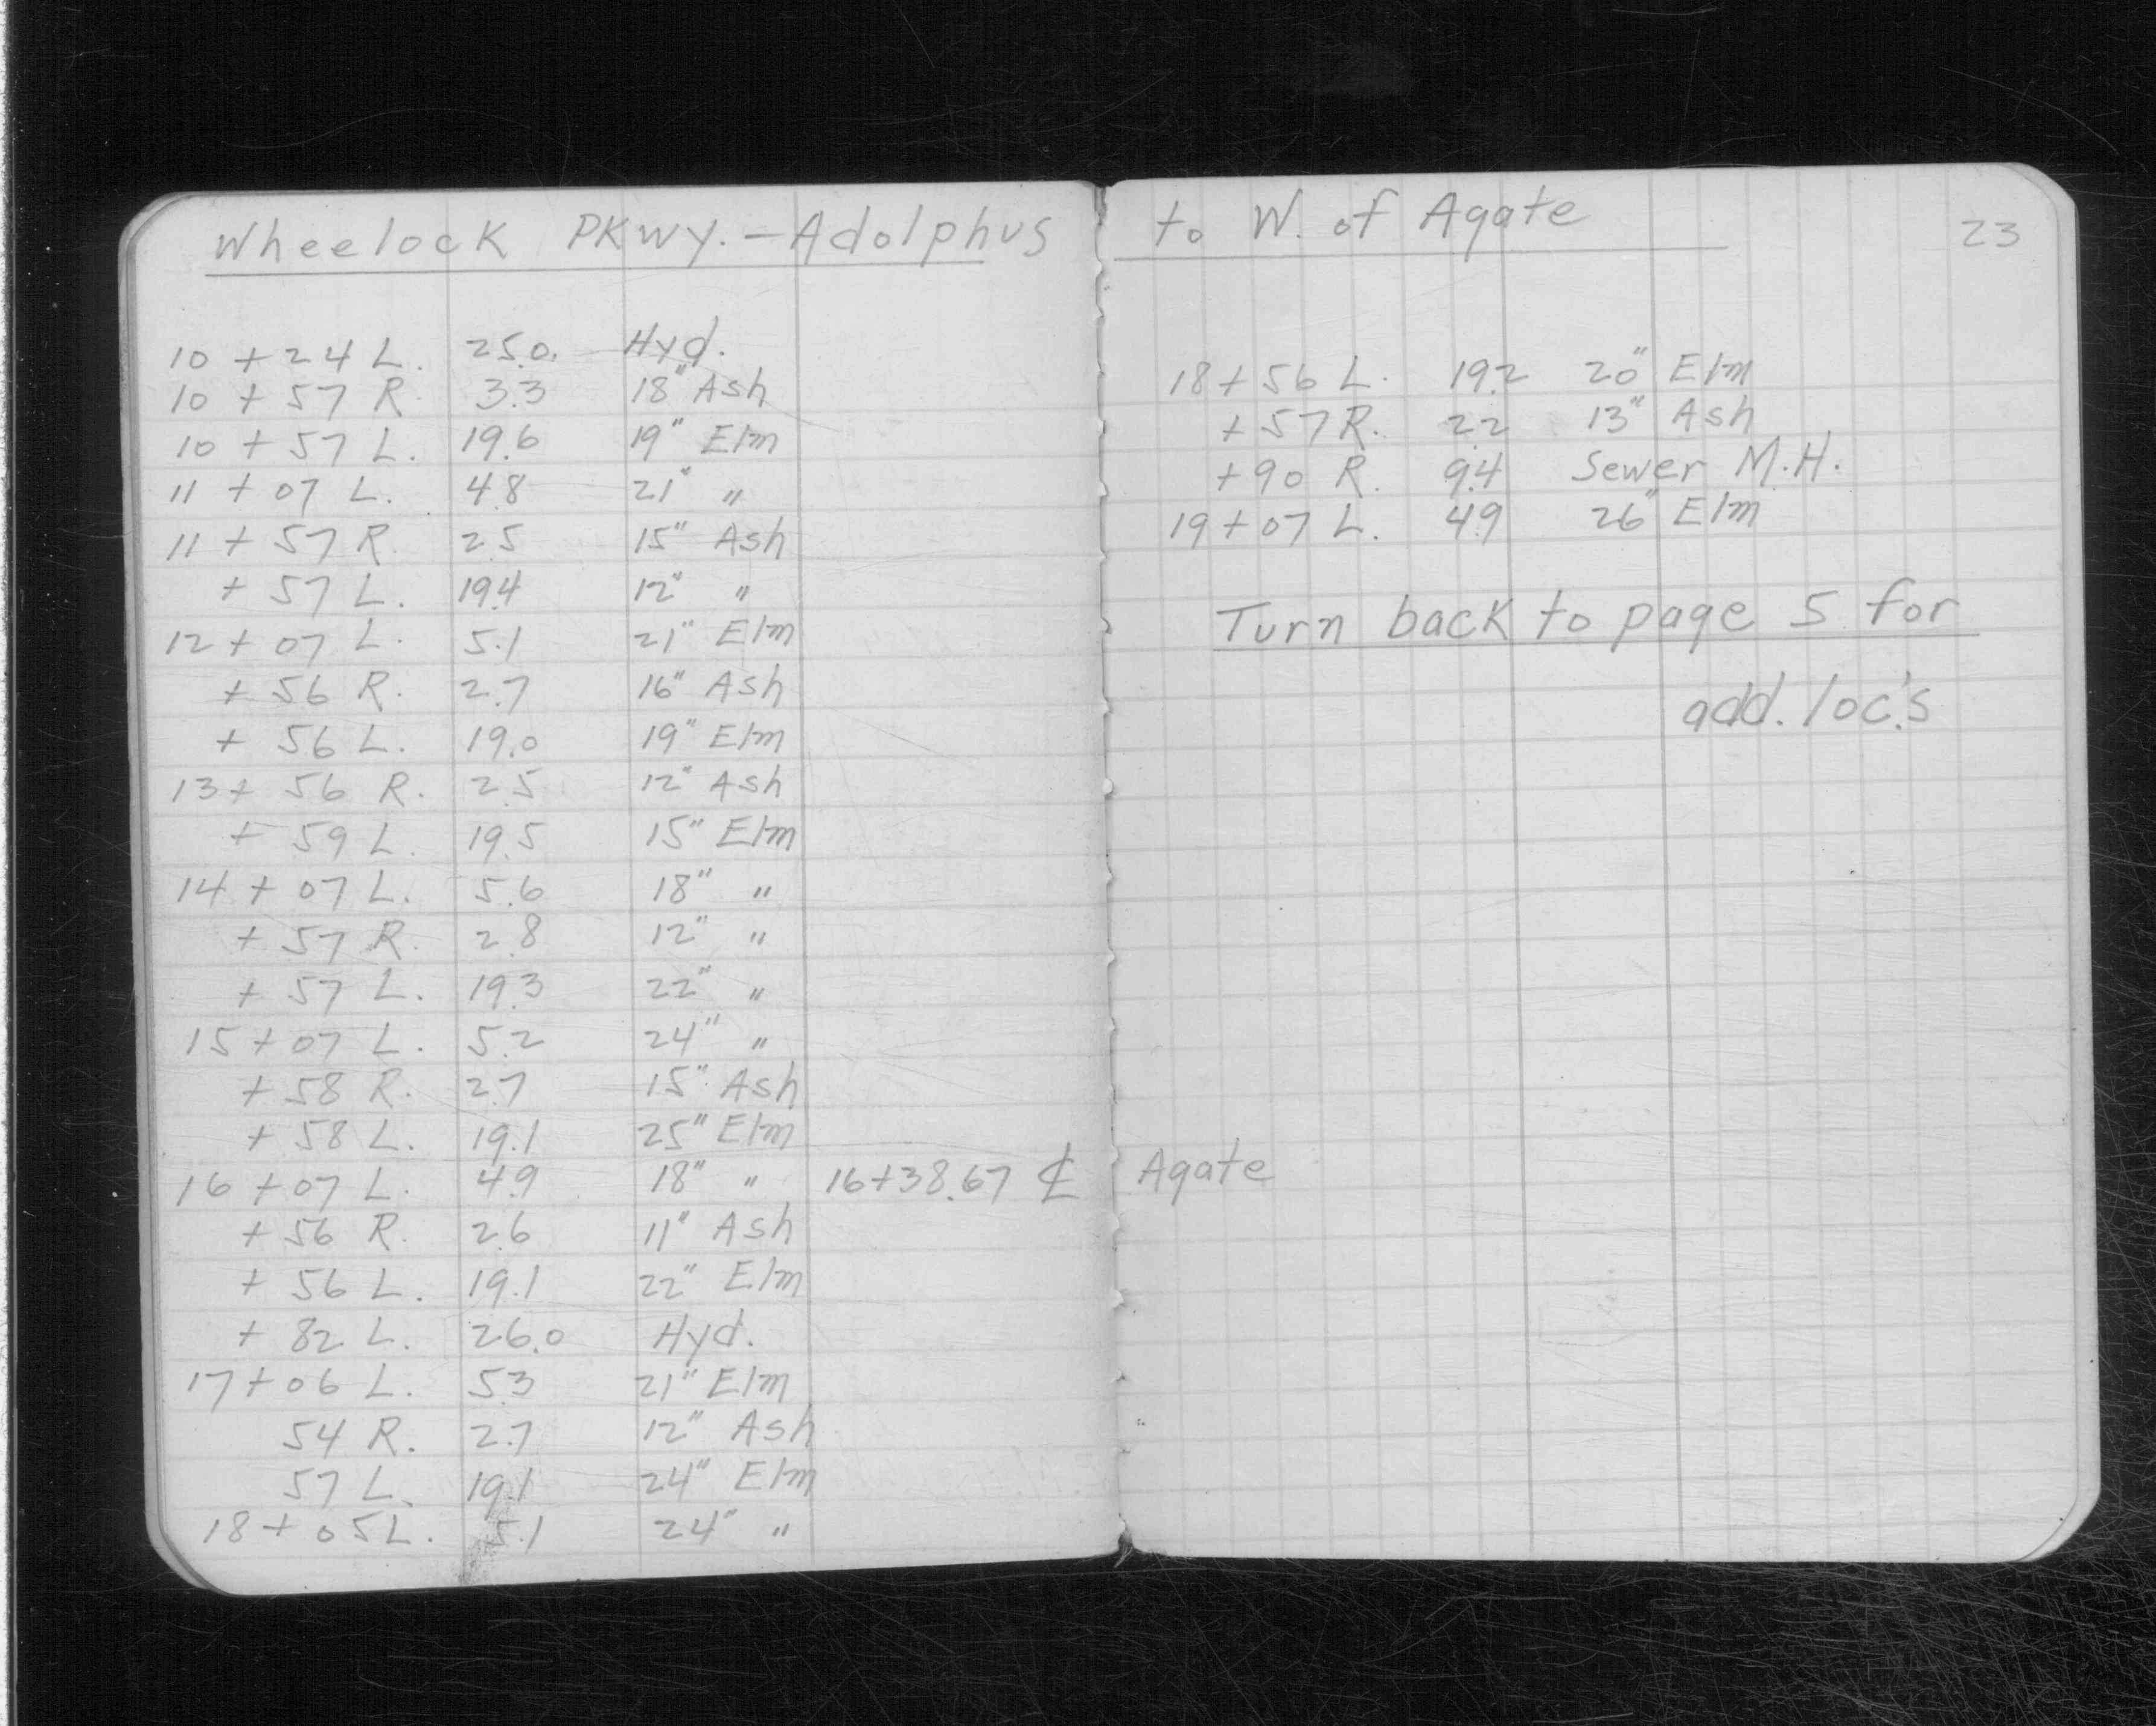 Wheelock PKwy. - Adolphus to W. of Agate
23
10 + 24 L. 25.0. Hyd.
10 + 57 R. 3.3 18" Ash
10 + 57 L. 19.6 19" Elm
11 + 07 L. 4.8 21" "
11 + 57 R. 2.5 15" Ash
+ 57 L. 19.4 12" "
12 + 07 L. 5.1 21" Elm
+ 56 R. 2.7 16" Ash
+ 56 L. 19.0 19" Elm
13 + 56 R. 2.5 12" Ash
+ 59 L. 19.5 15" Elm
14 + 07 L. 5.6 18" "
+ 57 R. 2.8 12" "
+ 57 L. 19.3 22" "
15 + 07 L. 5.2 24" "
+ 58 R. 2.7 15" Ash
+ 58 L. 19.1 25" Elm
16 + 07 L. 4.9 18" " 16+38.67 ℄ Agate
+ 56 R. 2.6 11" Ash
+ 56 L. 19.1 22" Elm
+ 82 L. 26.0 Hyd.
17 + 06 L. 5.3 21" Elm
54 R. 2.7 12" Ash
57 L. 19.1 24" Elm
18 + 05 L. 5.1 24" "
18 + 56 L. 19.2 20" Elm
+ 57 R. 2.2 13" Ash
+ 90 R. 9.4 Sewer M.H.
19 + 07 L. 4.9 26" Elm
Turn back to page 5 for
add. loc.'s